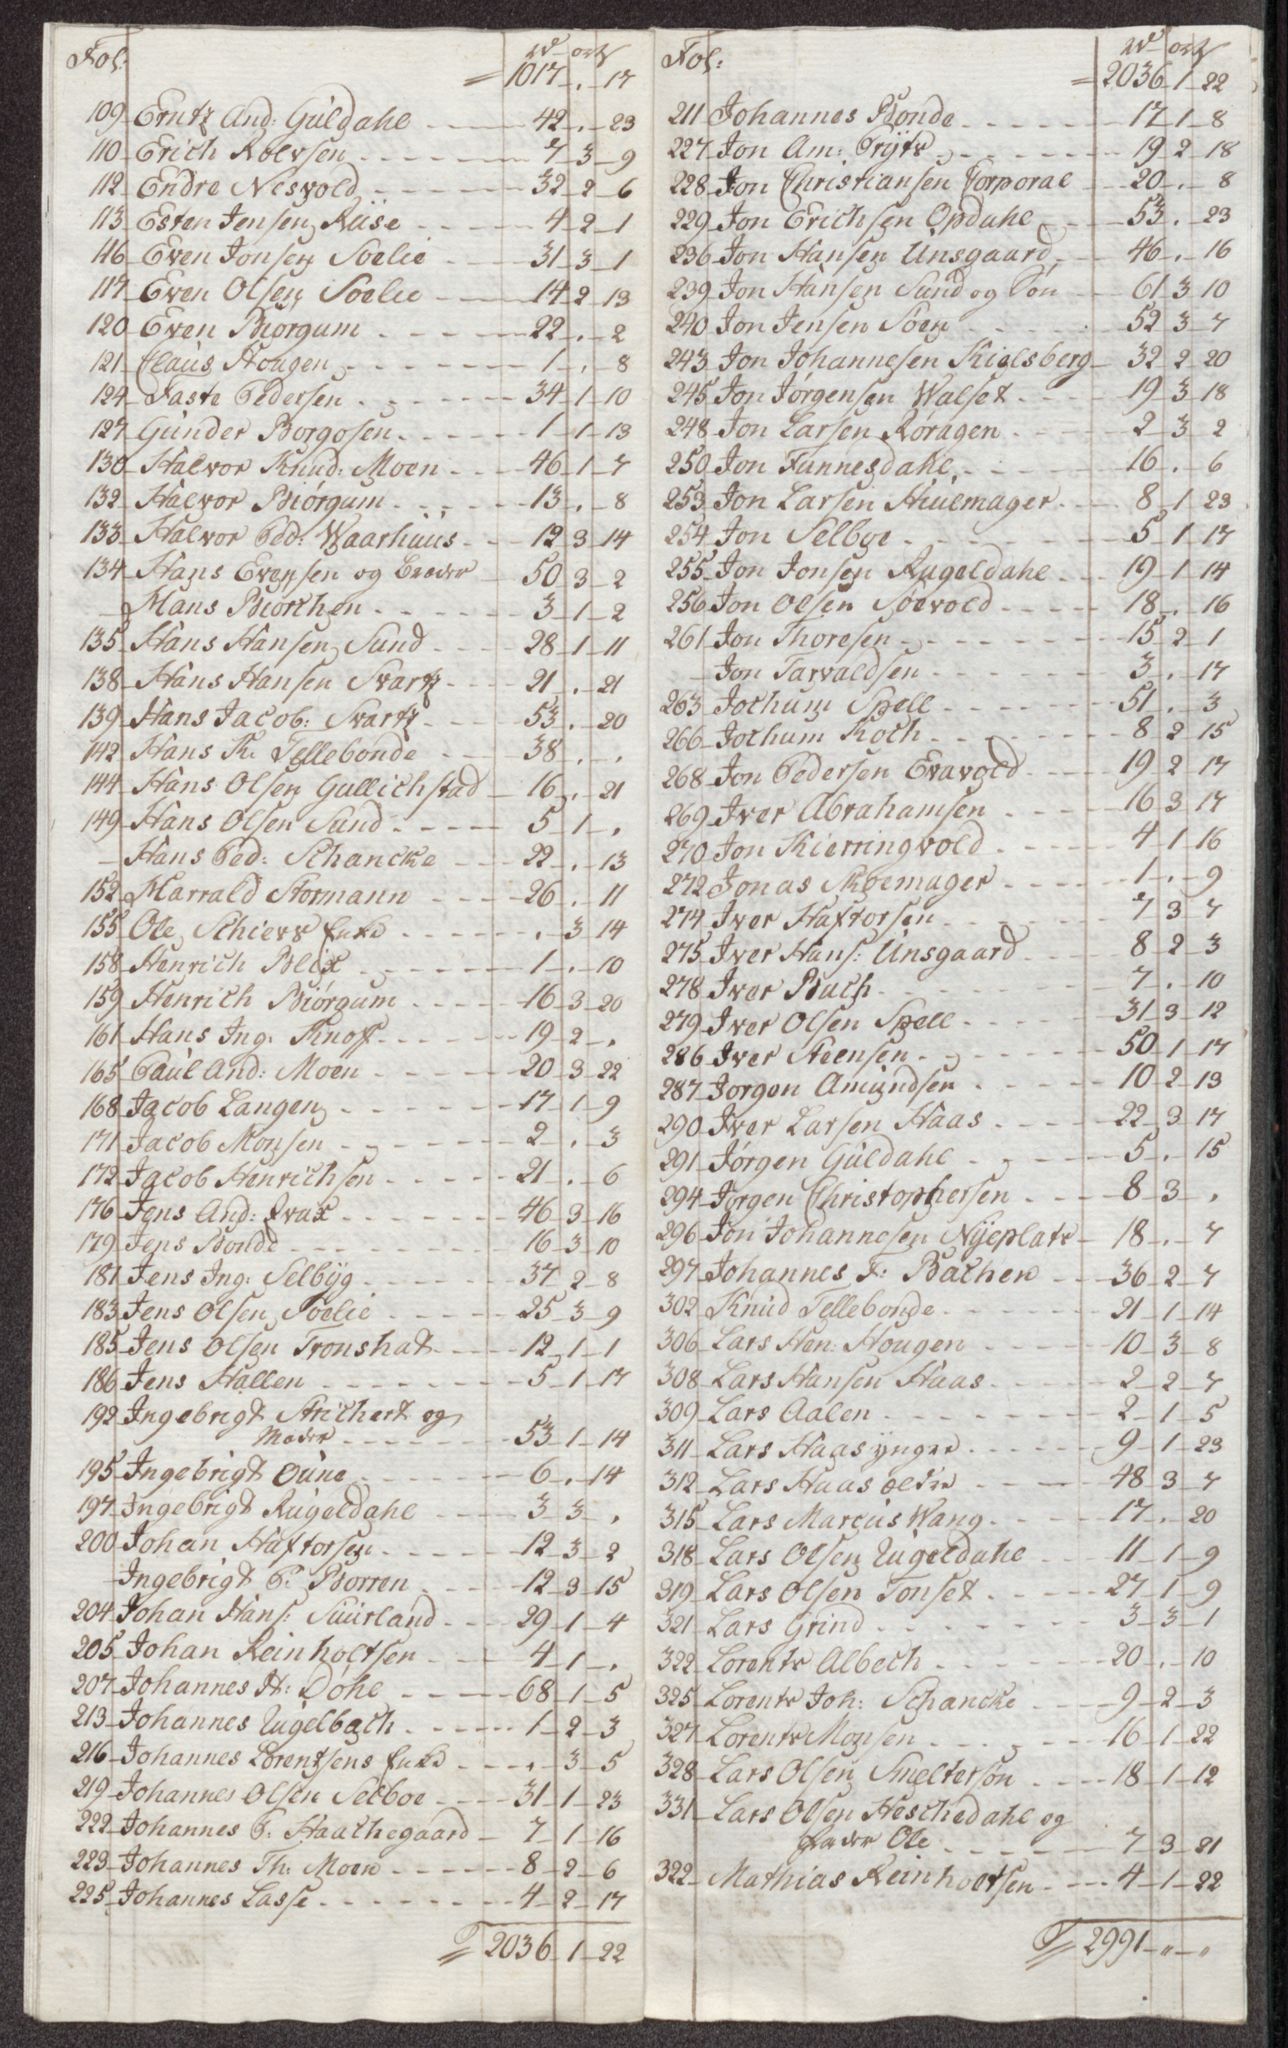 Fol: rd ort ß
1017 . 17
109 Erntz And: Güldahl 42 . 23
110 Erich Rolvsen 7 3 9
112 Endre Nesvold 32 2 6
113 Esten Jensen Riise 4 2 1
116 Even Jonsen Soelie 31 3 1
117 Even Olsen Soelie 14 2 13
120 Even Biorgum 22 . 2
121 Claüs Hougen 1 . 8
124 Faste Pedersen 34 1 10
127 Günder Borgosen 1 1 13
130 Halvor Knud: Moen 46 1 7
132 Halvor Biörgum 13 . 8
133 Halvor Ped: Waarhüüs 12 3 14
134 Hans Evensen og Broder 50 3 2
Hans Biorchen 3 1 2
135 Hans Hansen Sund 28 1 11
138 Hans Hansen Svartz 21 . 21
139 Hans Jacob: Svartz 53 . 20
142 Hans K. Tellebonde 38 . .
144 Hans Olsen Gullichstad 16 . 21
149 Hans Olsen Sund 5 1 .
Hans Ped: Schancke 22 . 13
152 Harrald Stormann 26 . 11
155 Ole Schiers Enke . 3 14
158 Henrich Blix 1 . 10
159 Henrich Biörgum 16 3 20
161 Hans Ing. Knoff 19 2 .
165 Paül And: Moen 20 3 22
168 Jacob Langen 17 1 9
171 Jacob Monsen 2 . 3
172 Jacob Henrichsen 21 . 6
176 Jens And: Qvax 46 3 16
179 Jens Bonde 16 3 10
181 Jens Ing: Selbÿg 37 2 8
183 Jens Olsen Soelie 25 3 9
185 Jens Olsen Tronshat 12 1 1
186 Jens Hallen 5 1 17
192 Ingebrigt Strichert og
Moder 53 1 14
195 Ingebrigt Oüne 6 . 14
197 Ingebrigt Rügeldahl 3 3 .
200 Johan Haftorsen 12 3 2
Ingebrigt P. Borren 12 3 15
204 Johan Hans: Süürland 29 1 4
205 Johan Reinholtsen 4 1 .
207 Johannes H: Döhl 68 1 5
213 Johannes Rügelbach 1 2 3
216 Johannes Lorentsens Enke . 3 5
219 Johannes Olsen Selboe 31 1 23
222 Johannes P. Haachegaard 7 1 16
223 Johannes Th: Moen 8 2 6
225 Johannes Lasse 4 2 17
2036 1 22
Fol: rd ort ß
2036 1 22
211 Johannes Bonde 17 1 8
227 Jon Am: Prÿtz 19 2 18
228 Jon Christiansen Corporal 20 . 8
229 Jon Erichsen Opdahl 53 . 23
236 Jon Hansen Unsgaard 46 . 16
239 Jon Hansen Sund og Sön 61 3 10
240 Jon Jensen Söen 52 3 7
243 Jon Johannesen Kielsberg 32 2 20
245 Jon Jörgensen Walset 19 3 18
248 Jon Larsen Röragen 2 3 2
250 Jon Funnesdahl 16 . 6
253 Jon Larsen Hiülmager 8 1 23
254 Jon Selboe 5 1 17
255 Jon Jonsen Rugeldahl 19 1 14
256 Jon Olsen Soevold 18 . 16
261 Jon Thoresen 15 2 1
Jon Tarvaldsen 3 . 17
263 Jochum Spell 51 . 3
266 Jochum Koch 8 2 15
268 Jon Pedersen Evavold 19 2 17
269 Iver Abrahamsen 16 3 17
270 Jon Kierringvold 4 1 16
272 Jonas Skoemager 1 . 9
274 Iver Haftorsen 7 3 7
275 Iver Hans: Unsgaard 8 2 3
278 Iver Buch 7 . 10
279 Iver Olsen Spell 31 3 12
286 Iver Steensen 50 1 17
287 Jorgen Amündsen 10 2 13
290 Iver Larsen Haas 22 3 17
291 Jörgen Güldahl 5 . 15
294 Jörgen Christophersen 8 3 .
296 Jon Johannesen Nÿeplatz 18 . 7
297 Johannes F: Bachen 36 2 7
302 Knüd Tellebonde 21 1 14
306 Lars Hen: Hougen 10 3 8
308 Lars Hansen Haas 2 2 7
309 Lars Aalen 2 1 5
311 Lars Haas ÿnger 9 1 23
312 Lars Haas Eldre 48 3 7
315 Lars Marcus Wang 17 . 20
318 Lars Olsen Rugeldahl 11 1 9
319 Lars Olsen Tonset 27 1 9
321 Lars Grind 3 3 1
322 Lorentz Albech 20 . 10
325 Lorentz Joh: Schancke 9 2 3
327 Lorentz Monsen 16 1 22
328 Lars Olsen Smelterson 18 1 12
331 Lars Olsen Heschedahl og
Fader Ole 7 3 21
322 Mathias Reinholtsen 4 1 22
2991 " "